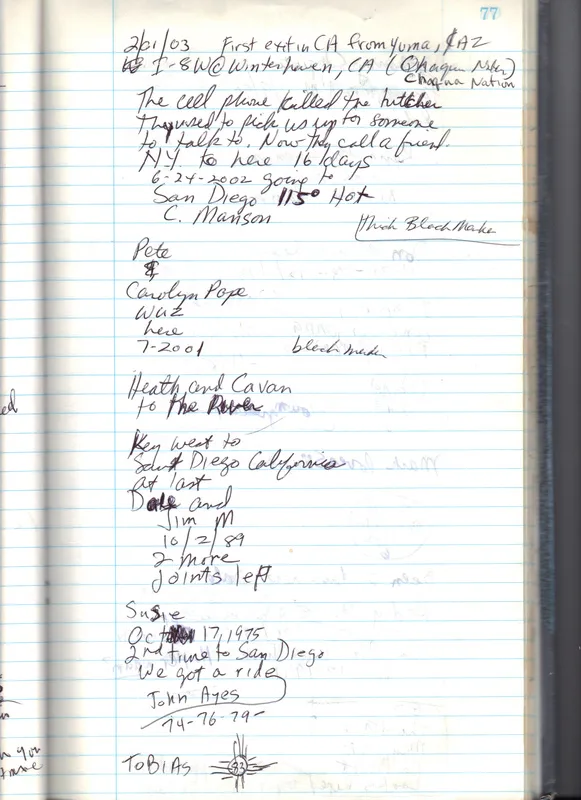 77
2/01/03 First exit in CA from Yuma, AZ
I-8W @ Winterhaven, CA (
Nation
The cell phone killed the hitcher
They used to pick us up for someone
to talk to. Now they call a friend.
NY to here 16 days
6-24-2002 going to
San Diego 115° Hot
C. Manson
Thick Black Maker
Pete
&
Carolyn Pope
wuz
here
7-2001
black maker
Heath and Cavan
to the River
Key West to
San Diego California
at last
Dale and
Jim M
10/2/89
2 more
joints left
Susie
Oct 17, 1975
2nd time to San Diego
We got a ride
John Ayes
74-76-79-
TOBIAS 93
ed
you